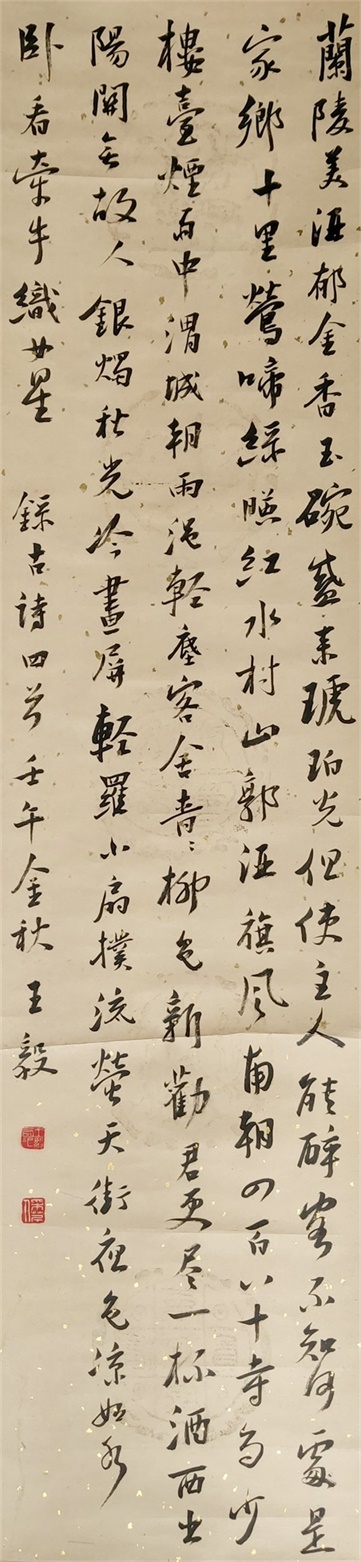 蘭陵美酒郁金香玉碗盛来琥珀光但使主人能醉客不知何處是
家鄉十里鶯啼綠映紅水村山郭酒旗風南朝四百八十寺多少
樓臺煙雨中渭城朝雨浥輕塵客舍青〻柳色新勸君更尽一杯酒西出
陽關无故人銀燭秋光冷畫屏輕羅小扇撲流螢天街夜色凉如水
卧看牽牛織女星 錄古詩四首壬午金秋王毅